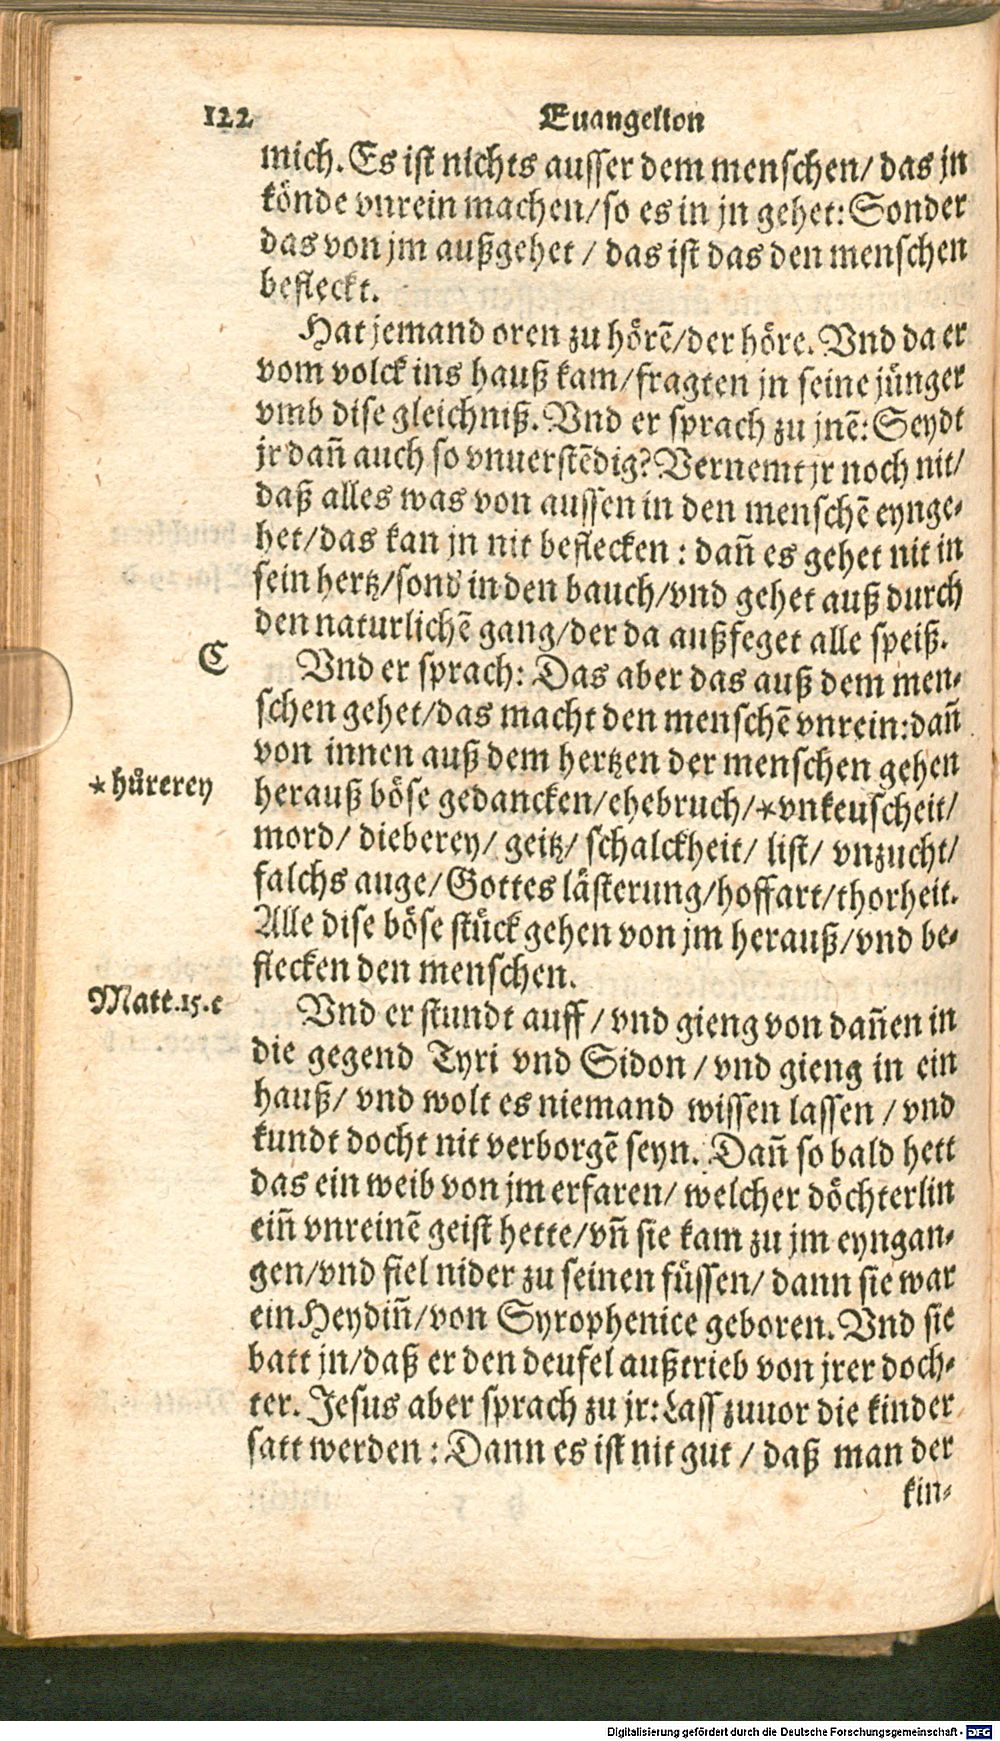 122 Euangelion
mich. Es ist nichts ausser dem menschen/ das jn
könde vnrein machen/so es in jn gehet: Sonder
das von jm außgehet / das ist das den menschen
befleckt.
Hat jemand oren zu hörē/der höre. Vnd da er
vom volck ins hauß kam/fragten jn seine jünger
vmb dise gleichniß. Vnd er sprach zu jnē: Seydt
jr dañ auch so vnuerstēdig? Vernemt jr noch nit/
daß alles was von aussen in den menschē eynge-
het/das kan jn nit beflecken : dañ es gehet nit in
sein hertz/sond in den bauch/vnd gehet auß durch
den naturlichē gang/der da außfeget alle speiß.
C
Vnd er sprach: Das aber das auß dem men-
schen gehet/das macht den menschē vnrein: dañ
von innen auß dem hertzen der menschen gehen
*hůrerey
herauß böse gedancken/ehebruch/*vnkeuscheit/
mord/ dieberey/ geitz/ schalckheit/ list/ vnzucht/
falchs auge/Gottes lästerung/hoffart/thorheit.
Alle dise böse stück gehen von jm herauß/vnd be-
flecken den menschen.
Matt.15.c
Vnd er stundt auff / vnd gieng von dañen in
die gegend Tyri vnd Sidon / vnd gieng in ein
hauß/ vnd wolt es niemand wissen lassen / vnd
kundt docht nit verborgē seyn. Dañ so bald hett
das ein weib von jm erfaren/ welcher döchterlin
eiñ vnreinē geist hette/vñ sie kam zu jm eyngan-
gen/vnd fiel nider zu seinen füssen/ dann sie war
ein Heydiñ/von Syrophenice geboren. Vnd sie
batt jn/daß er den deufel außtrieb von jrer doch-
ter. Jesus aber sprach zu jr: Lass zuuor die kinder
satt werden : Dann es ist nit gut / daß man der
kin-
Digitalisierung gefördert durch die Deutsche Forschungsgemeinschaft - DFG